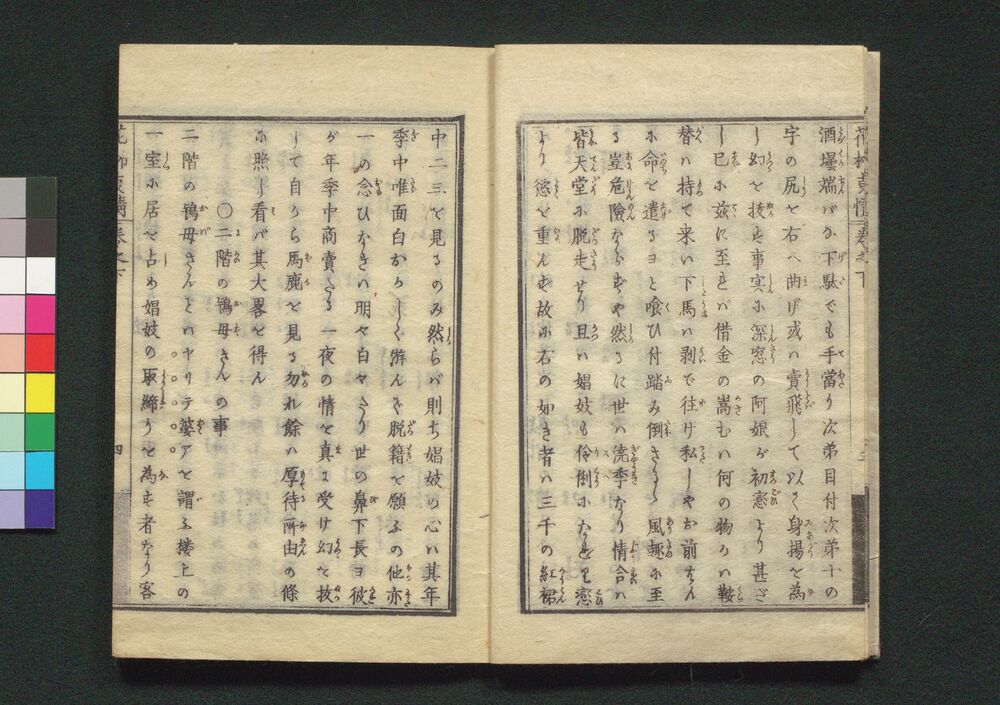 花柳事情 巻之下
酒壜端バカ下駄でも手當り次弟目付次弟十の
字の尻を右へ曲げ或ハ賣飛して以て身揚を為
し幻を抜す事実に深窓の阿娘が初恋より甚だ
し已に茲に至れバ借金の嵩むハ何の物かハ鞍
替ハ持て来い下馬ハ剥で往け私しやお前さん
に命を遣るヨと喰ひ付踏み倒さるゝ風趣に至
る豈危險ならずや然るに世ハ澆季なり情合ハ
皆天堂に脱走せり且ハ娼妓も伶倒になれバ恋
より慾を重んず故に右の如き者ハ三千の紅裙
中二三を見るのみ然らバ則ち娼妓の心ハ其年
季中唯面白おかしく游んで脱籍を願ふの他亦
一の念ひなきハ明々白々たり世の鼻下長ヨ彼
が年季中商賣たる一夜の情を真に受け幻を抜
して自から馬鹿を見る勿れ餘ハ厚待所由の條
に照し看バ其大畧を得ん
〇二階の鴇母さんの事
二階の鴇母さんとハヤリテ婆アを謂ふ捲上の
一室に居を占め娼妓の取締りを為す者なり客
花柳事情 巻之下
四